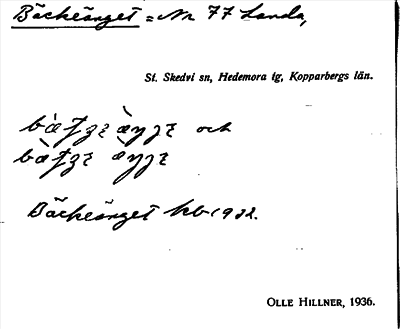 Bäckeänget = Nr 77 Landa,
St. Skedvi sn, Hedemora tg, Kopparbergs län.
och
Bäckeänget kb 1932.
OLLE HILLNER, 1936.